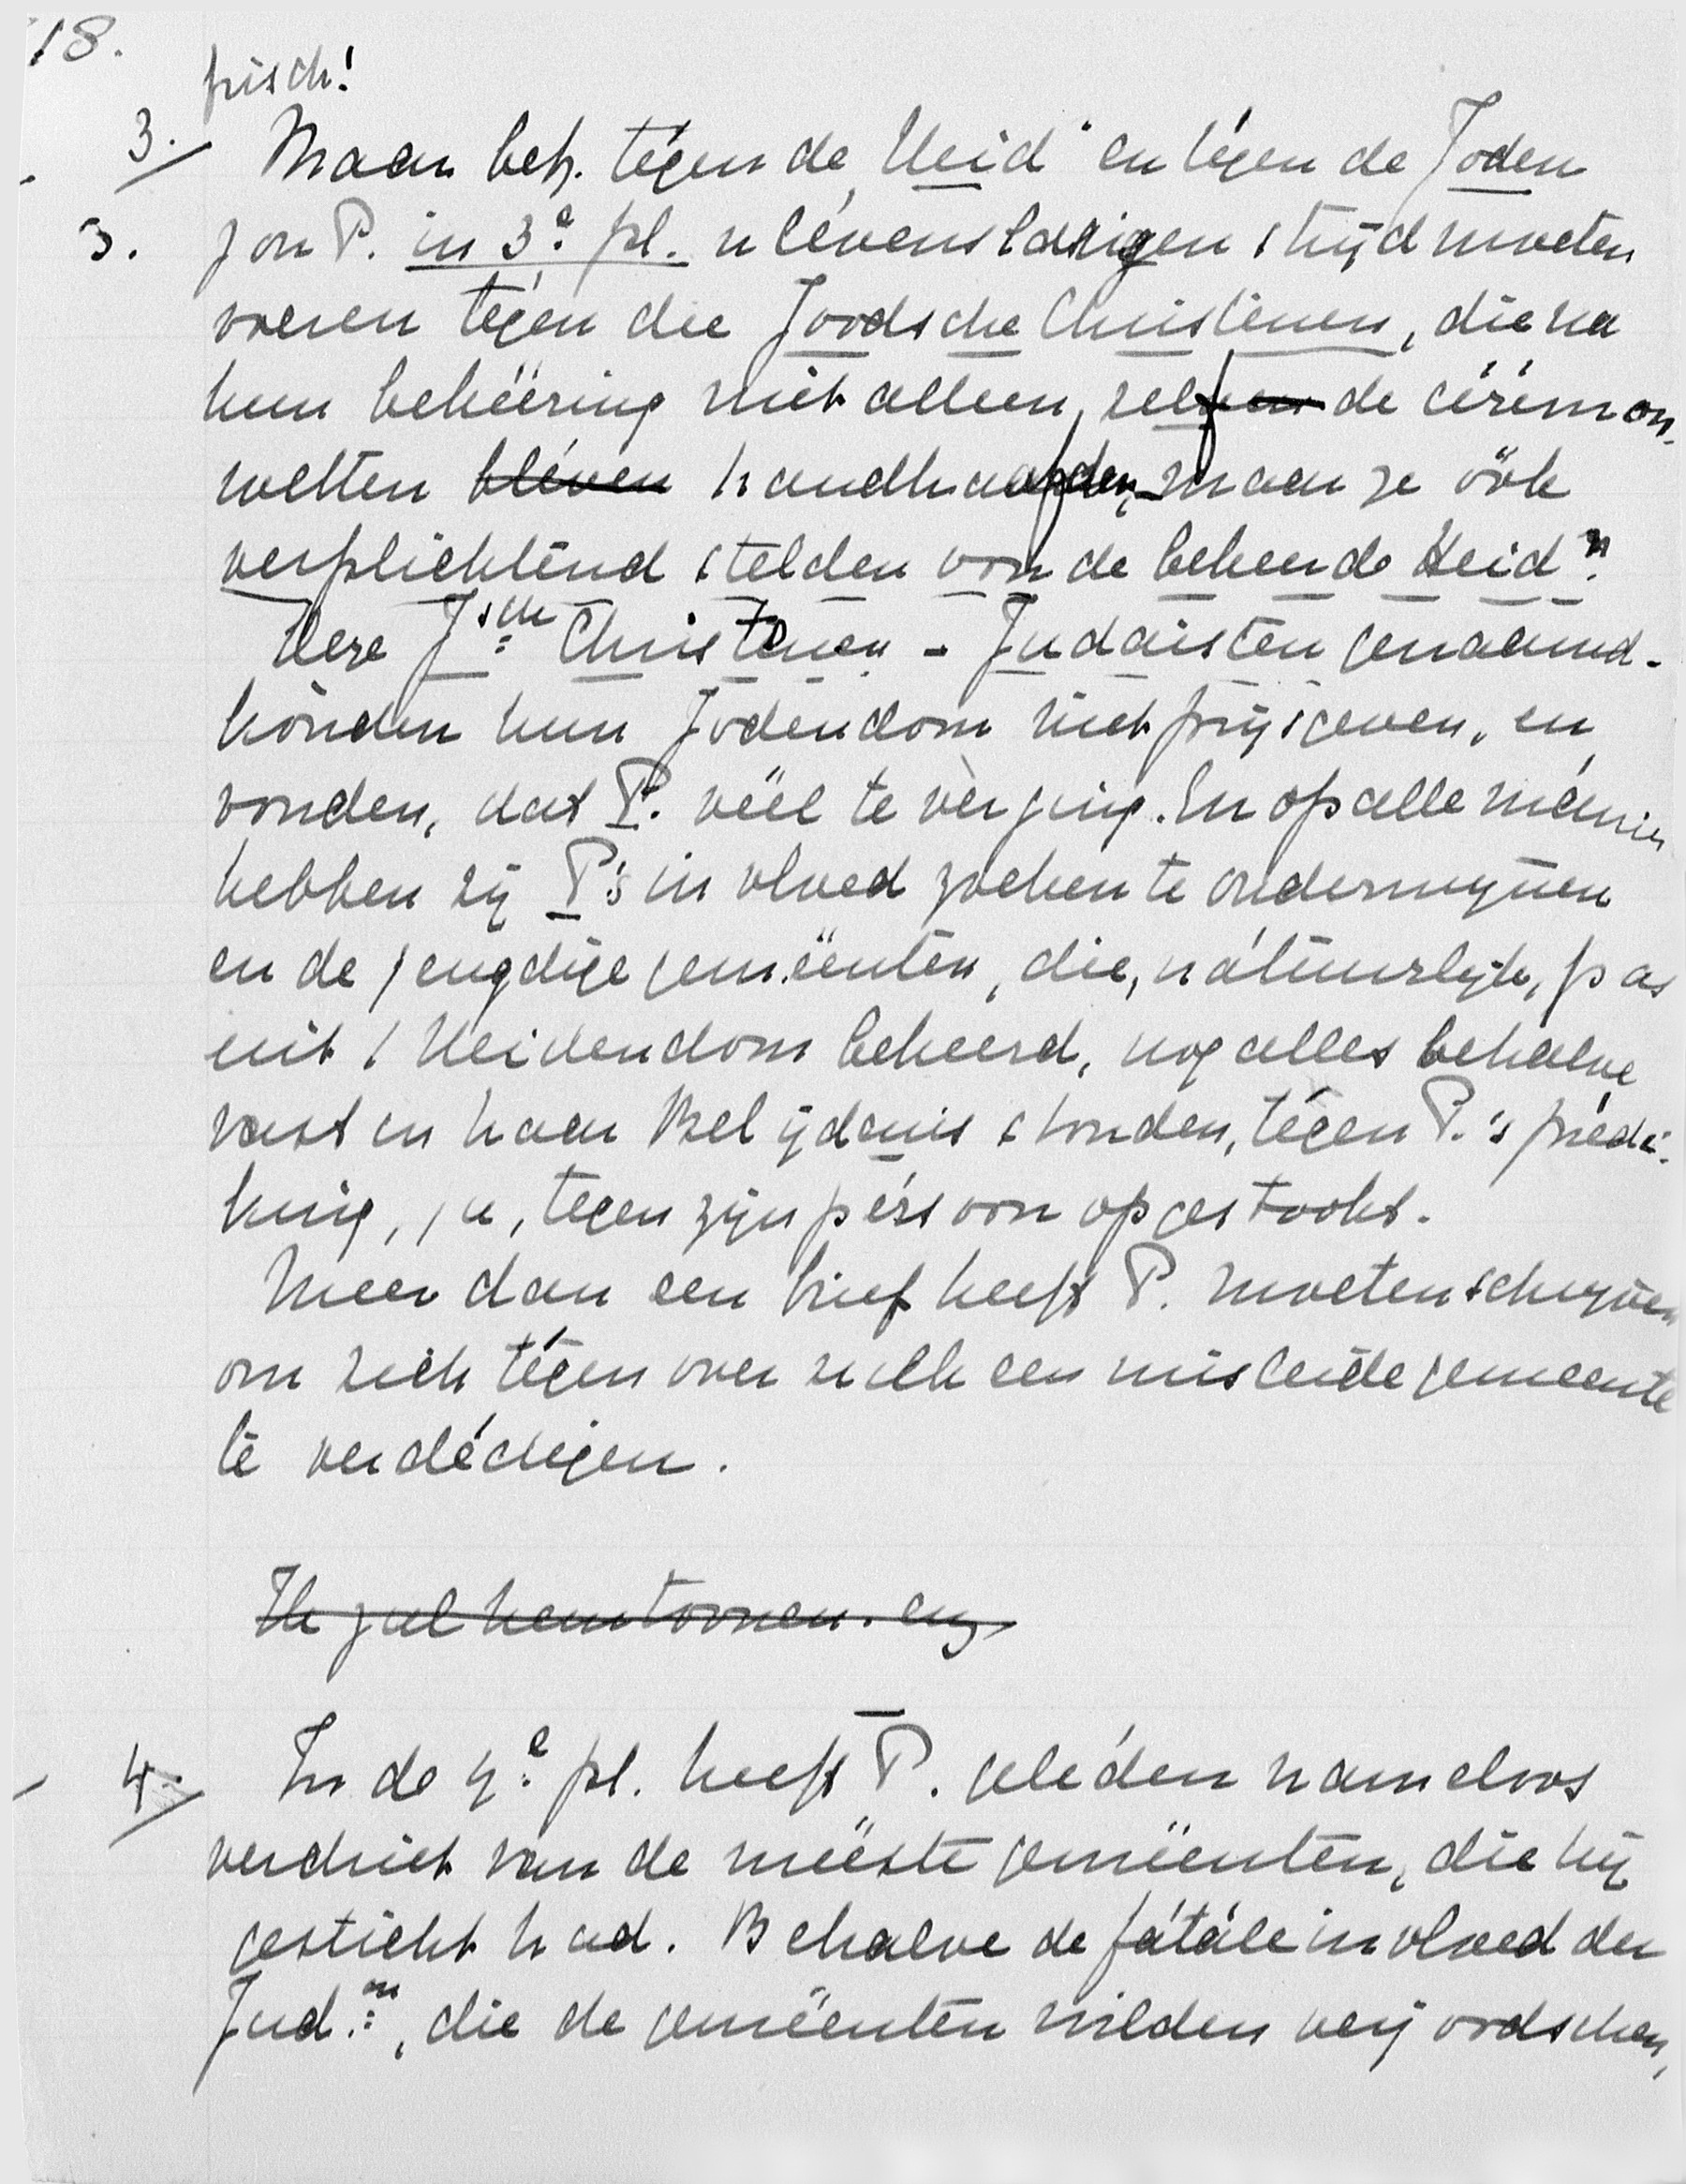 18.
frisch!
3. Maar beh. tégen de „Heid" en tégen de Joden
3. zou P. in 3e pl. 'n lévenslangen strijd moeten
voeren tegen die Joodsche Christenen, die na
hun bekëering niet alleen, zelf de cérémon.
wetten bléven handhaafden, maar ze öök
verplichtend stelden voor de bekeerde Heidn.
Deze Jsche Christenen - Judaisten genaamd -
kónden hun Jodendom niet prijsgeven, en
vonden, dat P. vëel te vèr ging. En op alle manier
hebben zij P's invloed zoeken te ondermijnen
en de jeugdige gemëenten, die, nátuurlijk, pas
uit 't Heidendom bekeerd, nog alles behalve
vast in haar Belijdenis stonden, tégen P.'s prédi-
king, ja, tegen zijn pérsoon opgestookt.
Meer dan een brief heeft P. moeten schrijven
om zich tégenover zulk een misleide gemeente
te verdédigen.
Ik zal hem toonen. enz
4. In de 4e pl. heeft P. geléden nameloos
verdriet van de mëeste gemëenten, die hij
gesticht had. Behalve de fátále invloed der
Jud.en, die de gemëenten wilden verjoodschen,